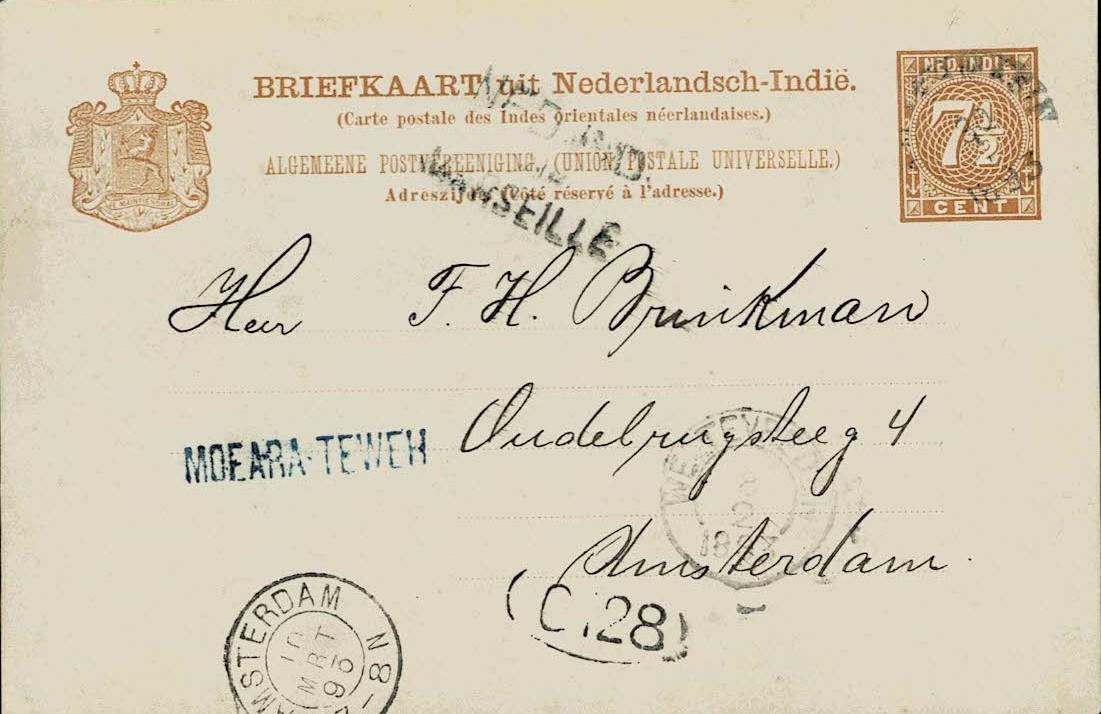 BRIEFKAART uit Nederlandsch-Indië.
(Carte postale des Indes orientales néerlandaises.)
ALGEMEENE POSTVEREENIGING. (UNION POSTALE UNIVERSELLE.)
Adreszijde. (Côté réservé à l'adresse.)
JE MAINTIENDRAI
NED. INDIE
7½
CENT
NED. IND.
MARSEILLE
Heer F. H. Brinkman
Oudebrugsteeg 4
Amsterdam.
MOEARA-TEWEH
WELTEVREDEN
AMSTERDAM
10
MRT
93
N 8-
C 128